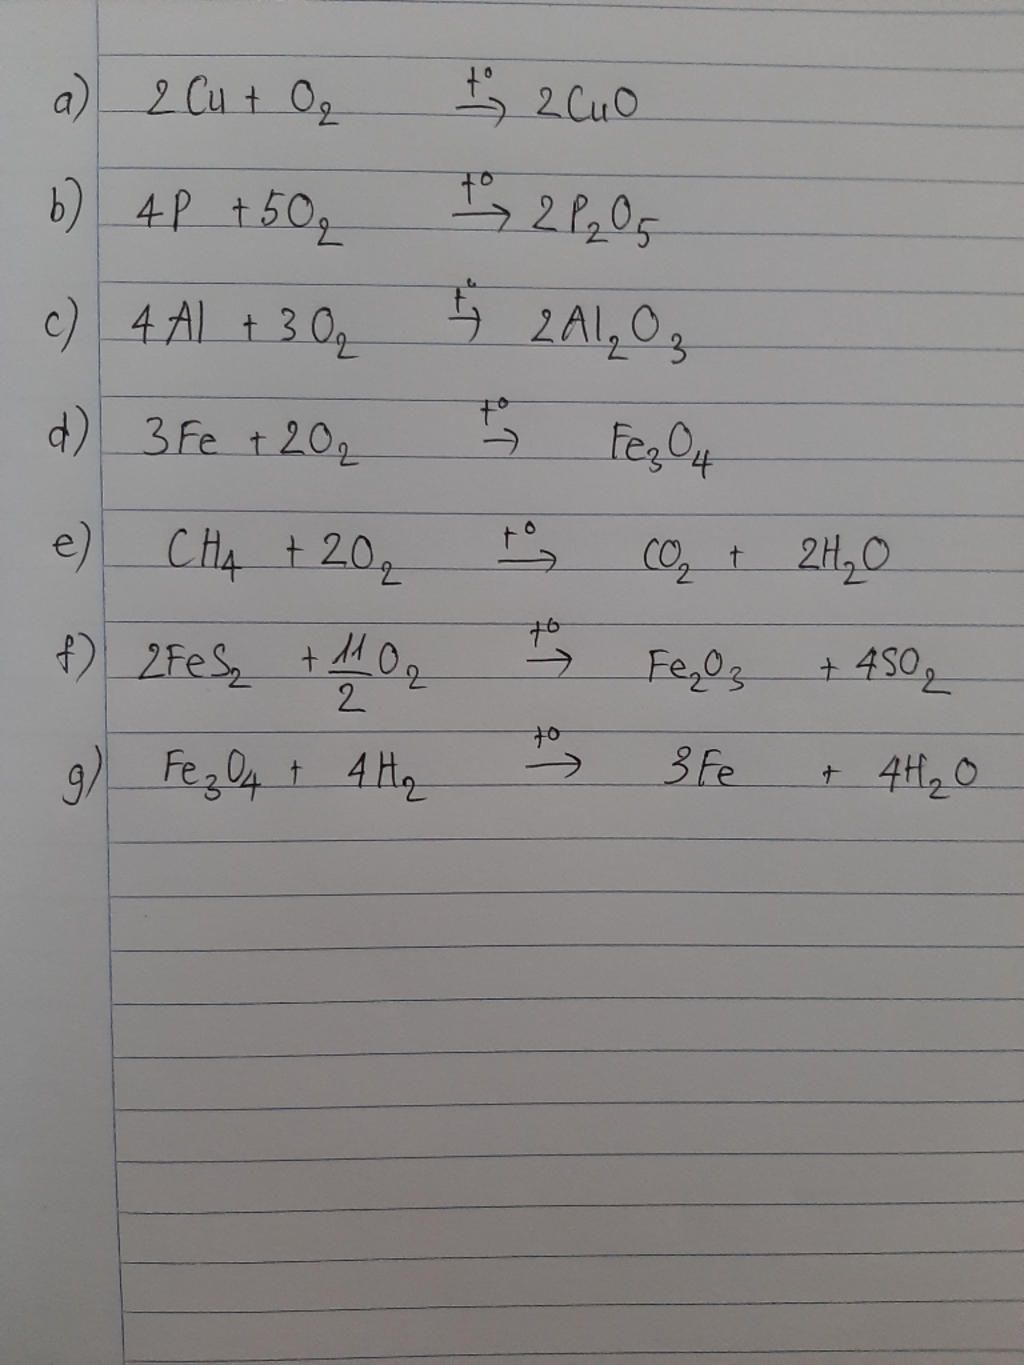 a) 2Cu + O₂ →t° 2CuO
b) 4P + 5O₂ →t° 2P₂O₅
c) 4Al + 3O₂ →t° 2Al₂O₃
d) 3Fe + 2O₂ →t° Fe₃O₄
e) CH₄ + 2O₂ →t° CO₂ + 2H₂O
f) 2FeS₂ + 11/2 O₂ →t° Fe₂O₃ + 4SO₂
g) Fe₃O₄ + 4H₂ →t° 3Fe + 4H₂O